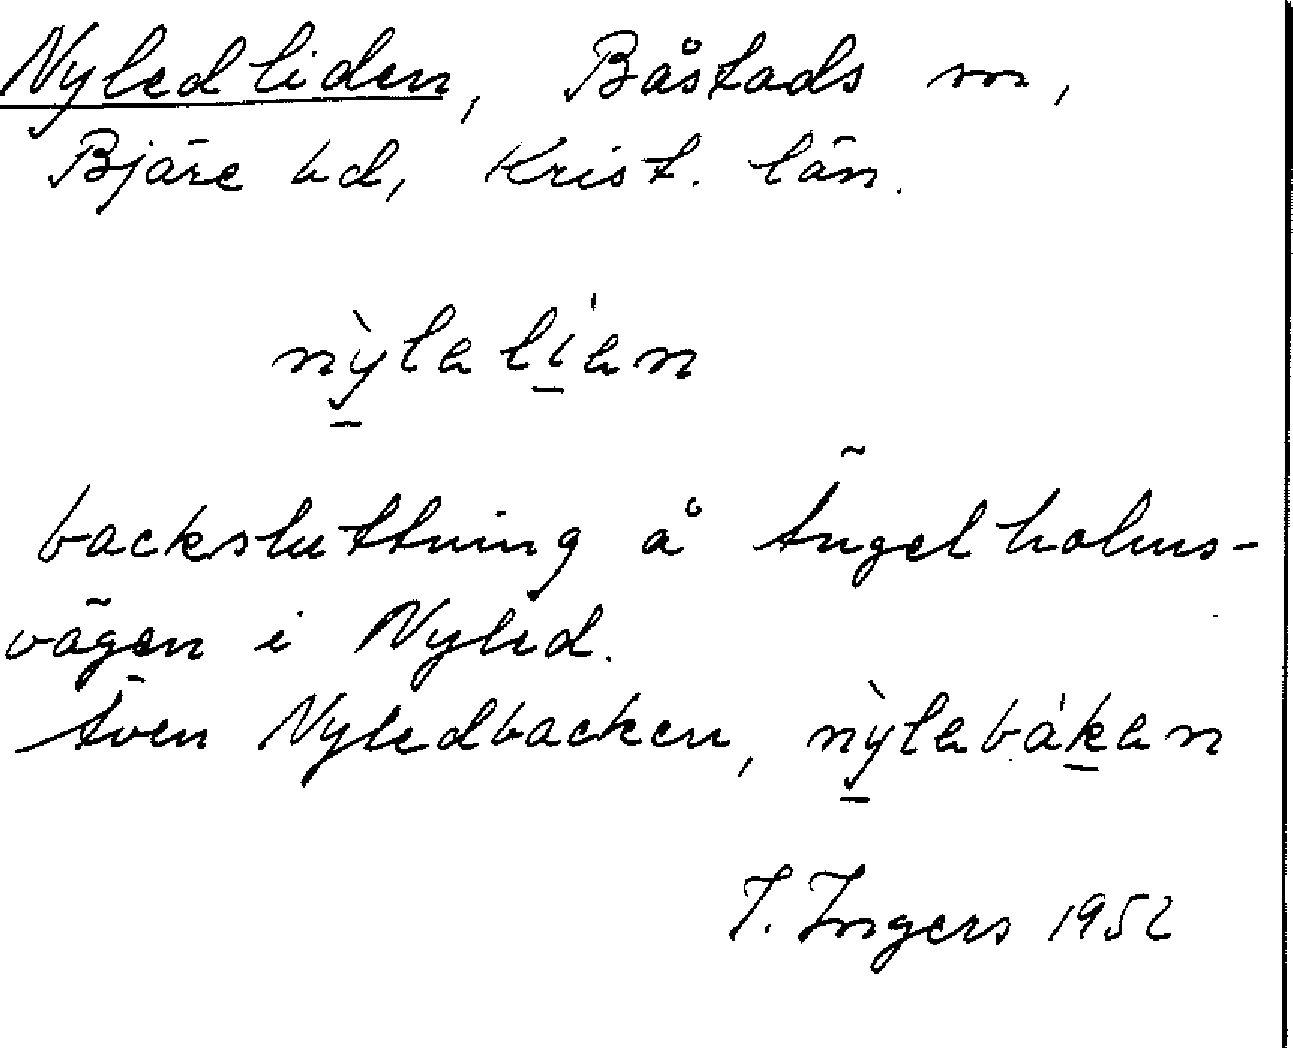 Nyledliden, Båstads sn,
Bjäre hd, Krist. län.
nỳlalían
backsluttning å Ängelholms-
vägen i Nyled.
Även Nyledbacken, nỳlabákan
I. Ingers 1952